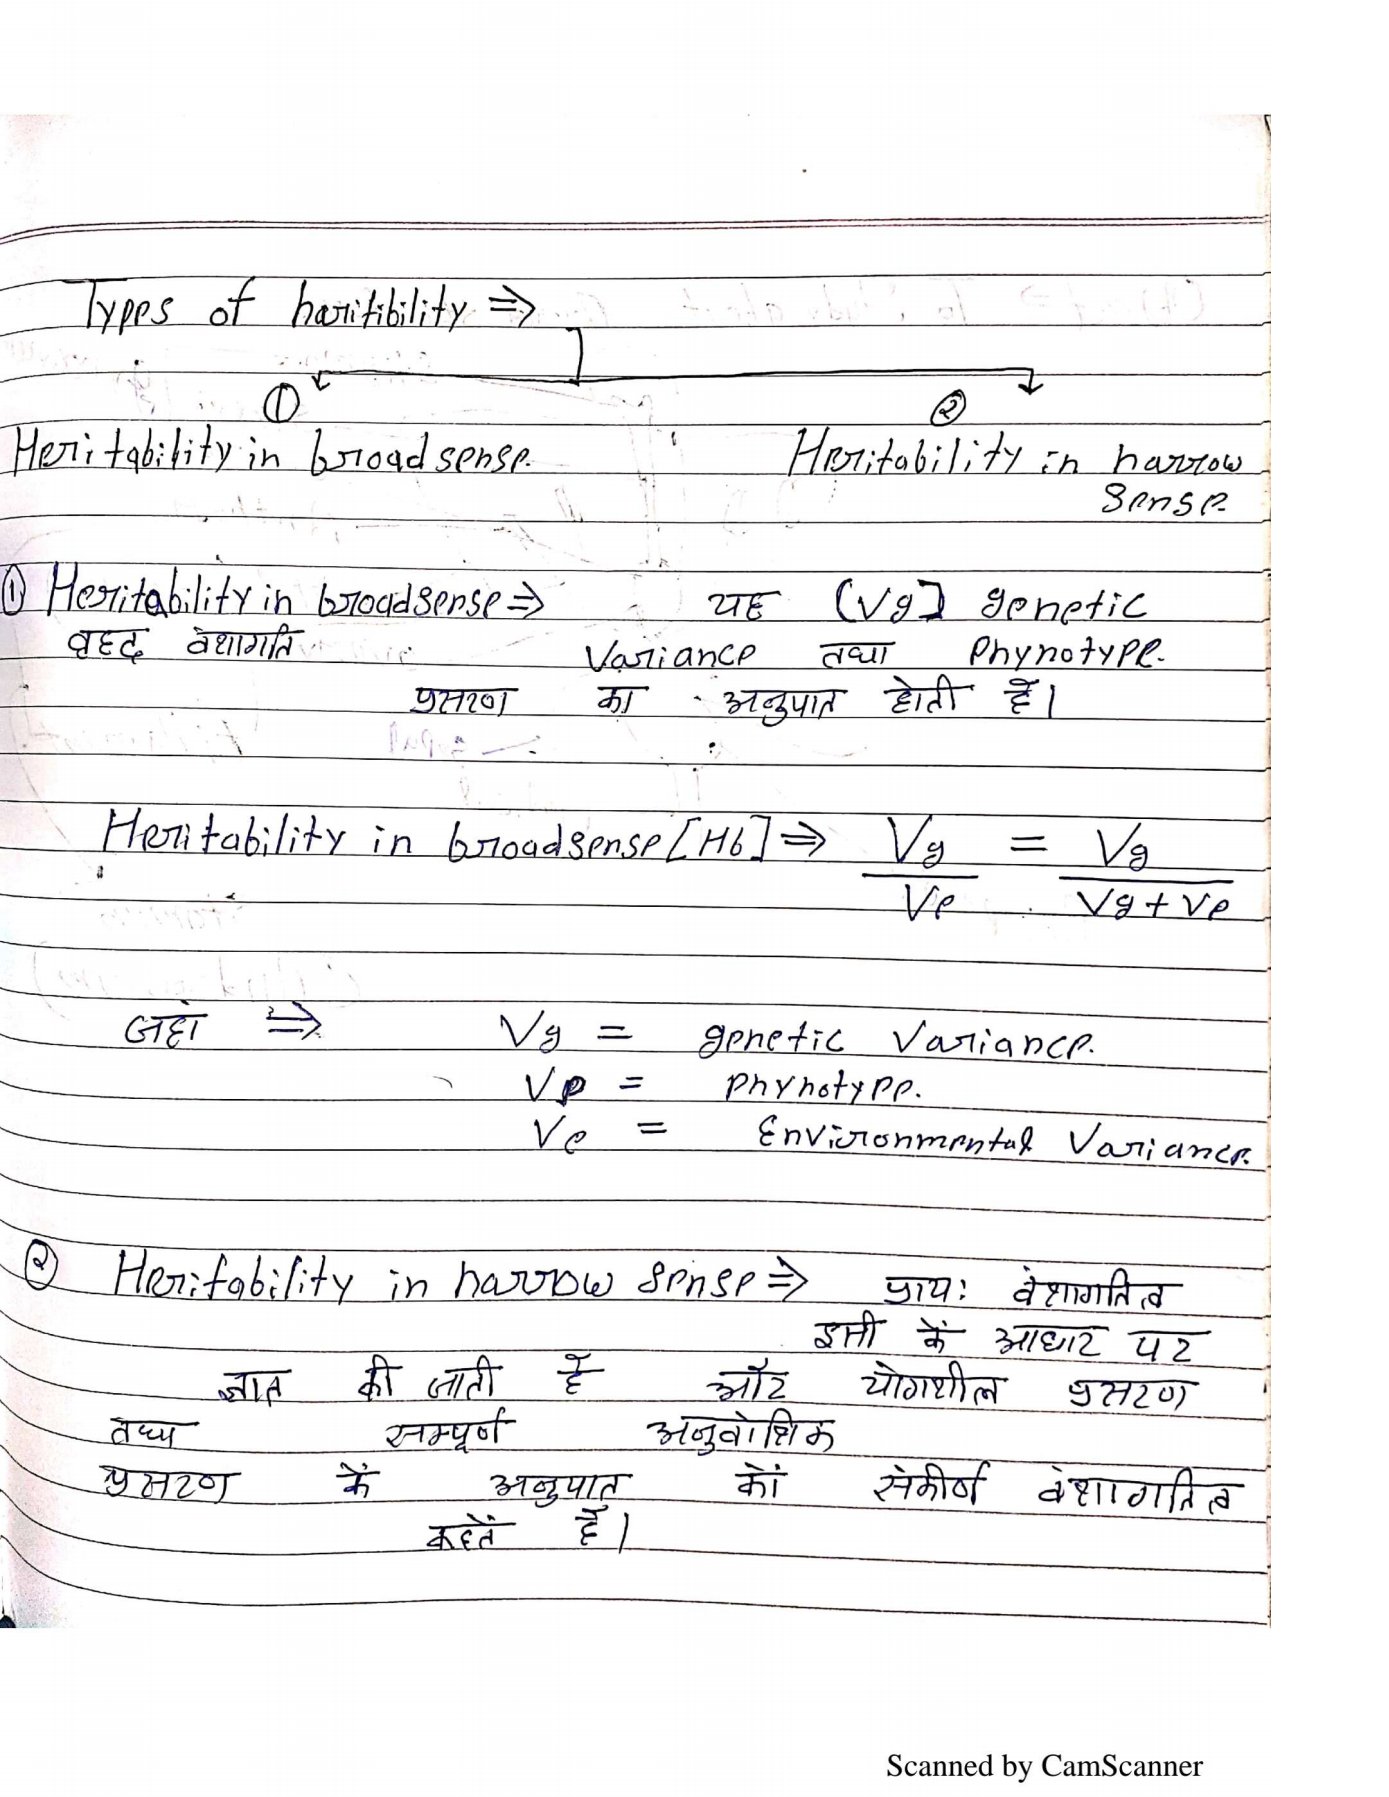 Types of haritibility ⇒
① ②
Heritability in broad sense. Heritability in narrow
sense.
① Heritability in broadsense ⇒ यह (Vg] genetic
वृहद वंशागति Variance तथा Phynotype.
प्रसरण का अनुपात होती हैं।
Heritability in broadsense [Hb] ⇒ Vg/Vp = Vg/Vg + Ve
जहां ⇒ Vg = genetic Variance.
Vp = Phynotype.
Ve = Environmental Variance.
② Heritability in narrow sense ⇒ प्रायः वंशागतित्व
इसी कें आधार पर
ज्ञात की जाती हैं और योगशील प्रसरण
तथा सम्पूर्ण अनुवांशिक
प्रसरण कें अनुपात कों संकीर्ण वंशागतित्व
कहतें हैं।
Scanned by CamScanner